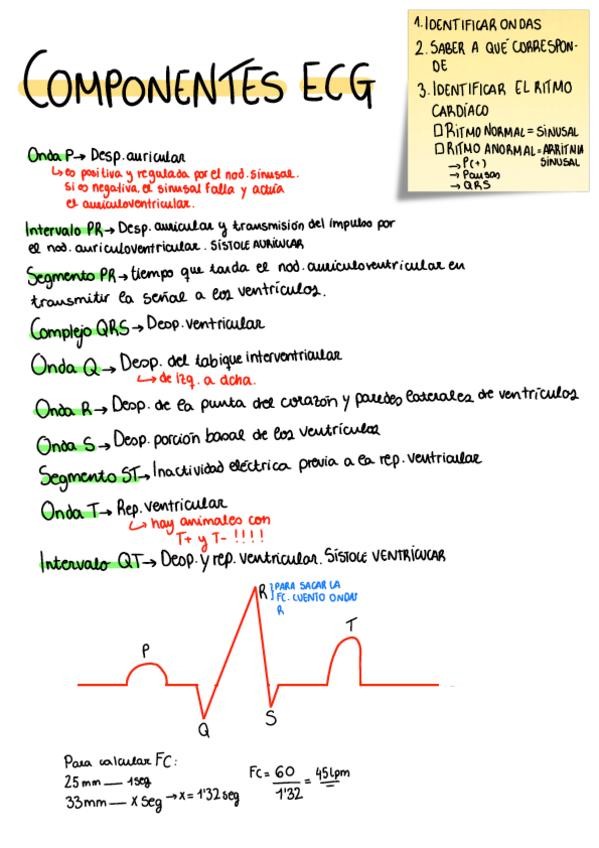 COMPONENTES ECG
1. IDENTIFICAR ONDAS
2. SABER A QUÉ CORRESPON-
DE
3. IDENTIFICAR EL RITMO
CARDÍACO
☐ RITMO NORMAL = SINUSAL
☐ RITMO ANORMAL = ARRITMIA
SINUSAL
→ P(+)
→ Pausas
→ QRS
Onda P → Desp. auricular
↳ es positiva y regulada por el nod. sinusal.
Si es negativa, el sinusal falla y actúa
el auriculoventricular.
Intervalo PR → Desp. auricular y transmisión del impulso por
el nod. auriculoventricular. SÍSTOLE AURICULAR
Segmento PR → tiempo que tarda el nod. auriculoventricular en
transmitir la señal a los ventrículos.
Complejo QRS → Desp. ventricular
Onda Q → Desp. del tabique interventricular
↳ de izq. a dcha.
Onda R → Desp. de la punta del corazón y paredes laterales de ventrículos
Onda S → Desp. porción basal de los ventrículos
Segmento ST → Inactividad eléctrica previa a la rep. ventricular
Onda T → Rep. ventricular
↳ hay animales con
T+ y T- !!!!
Intervalo QT → Desp. y rep. ventricular. SÍSTOLE VENTRICULAR
R } PARA SACAR LA
FC. CUENTO ONDAS
R
P
T
Q
S
Para calcular FC:
25 mm — 1seg
33 mm — X seg → x = 1'32 seg
FC = 60 / 1'32 = 45 lpm